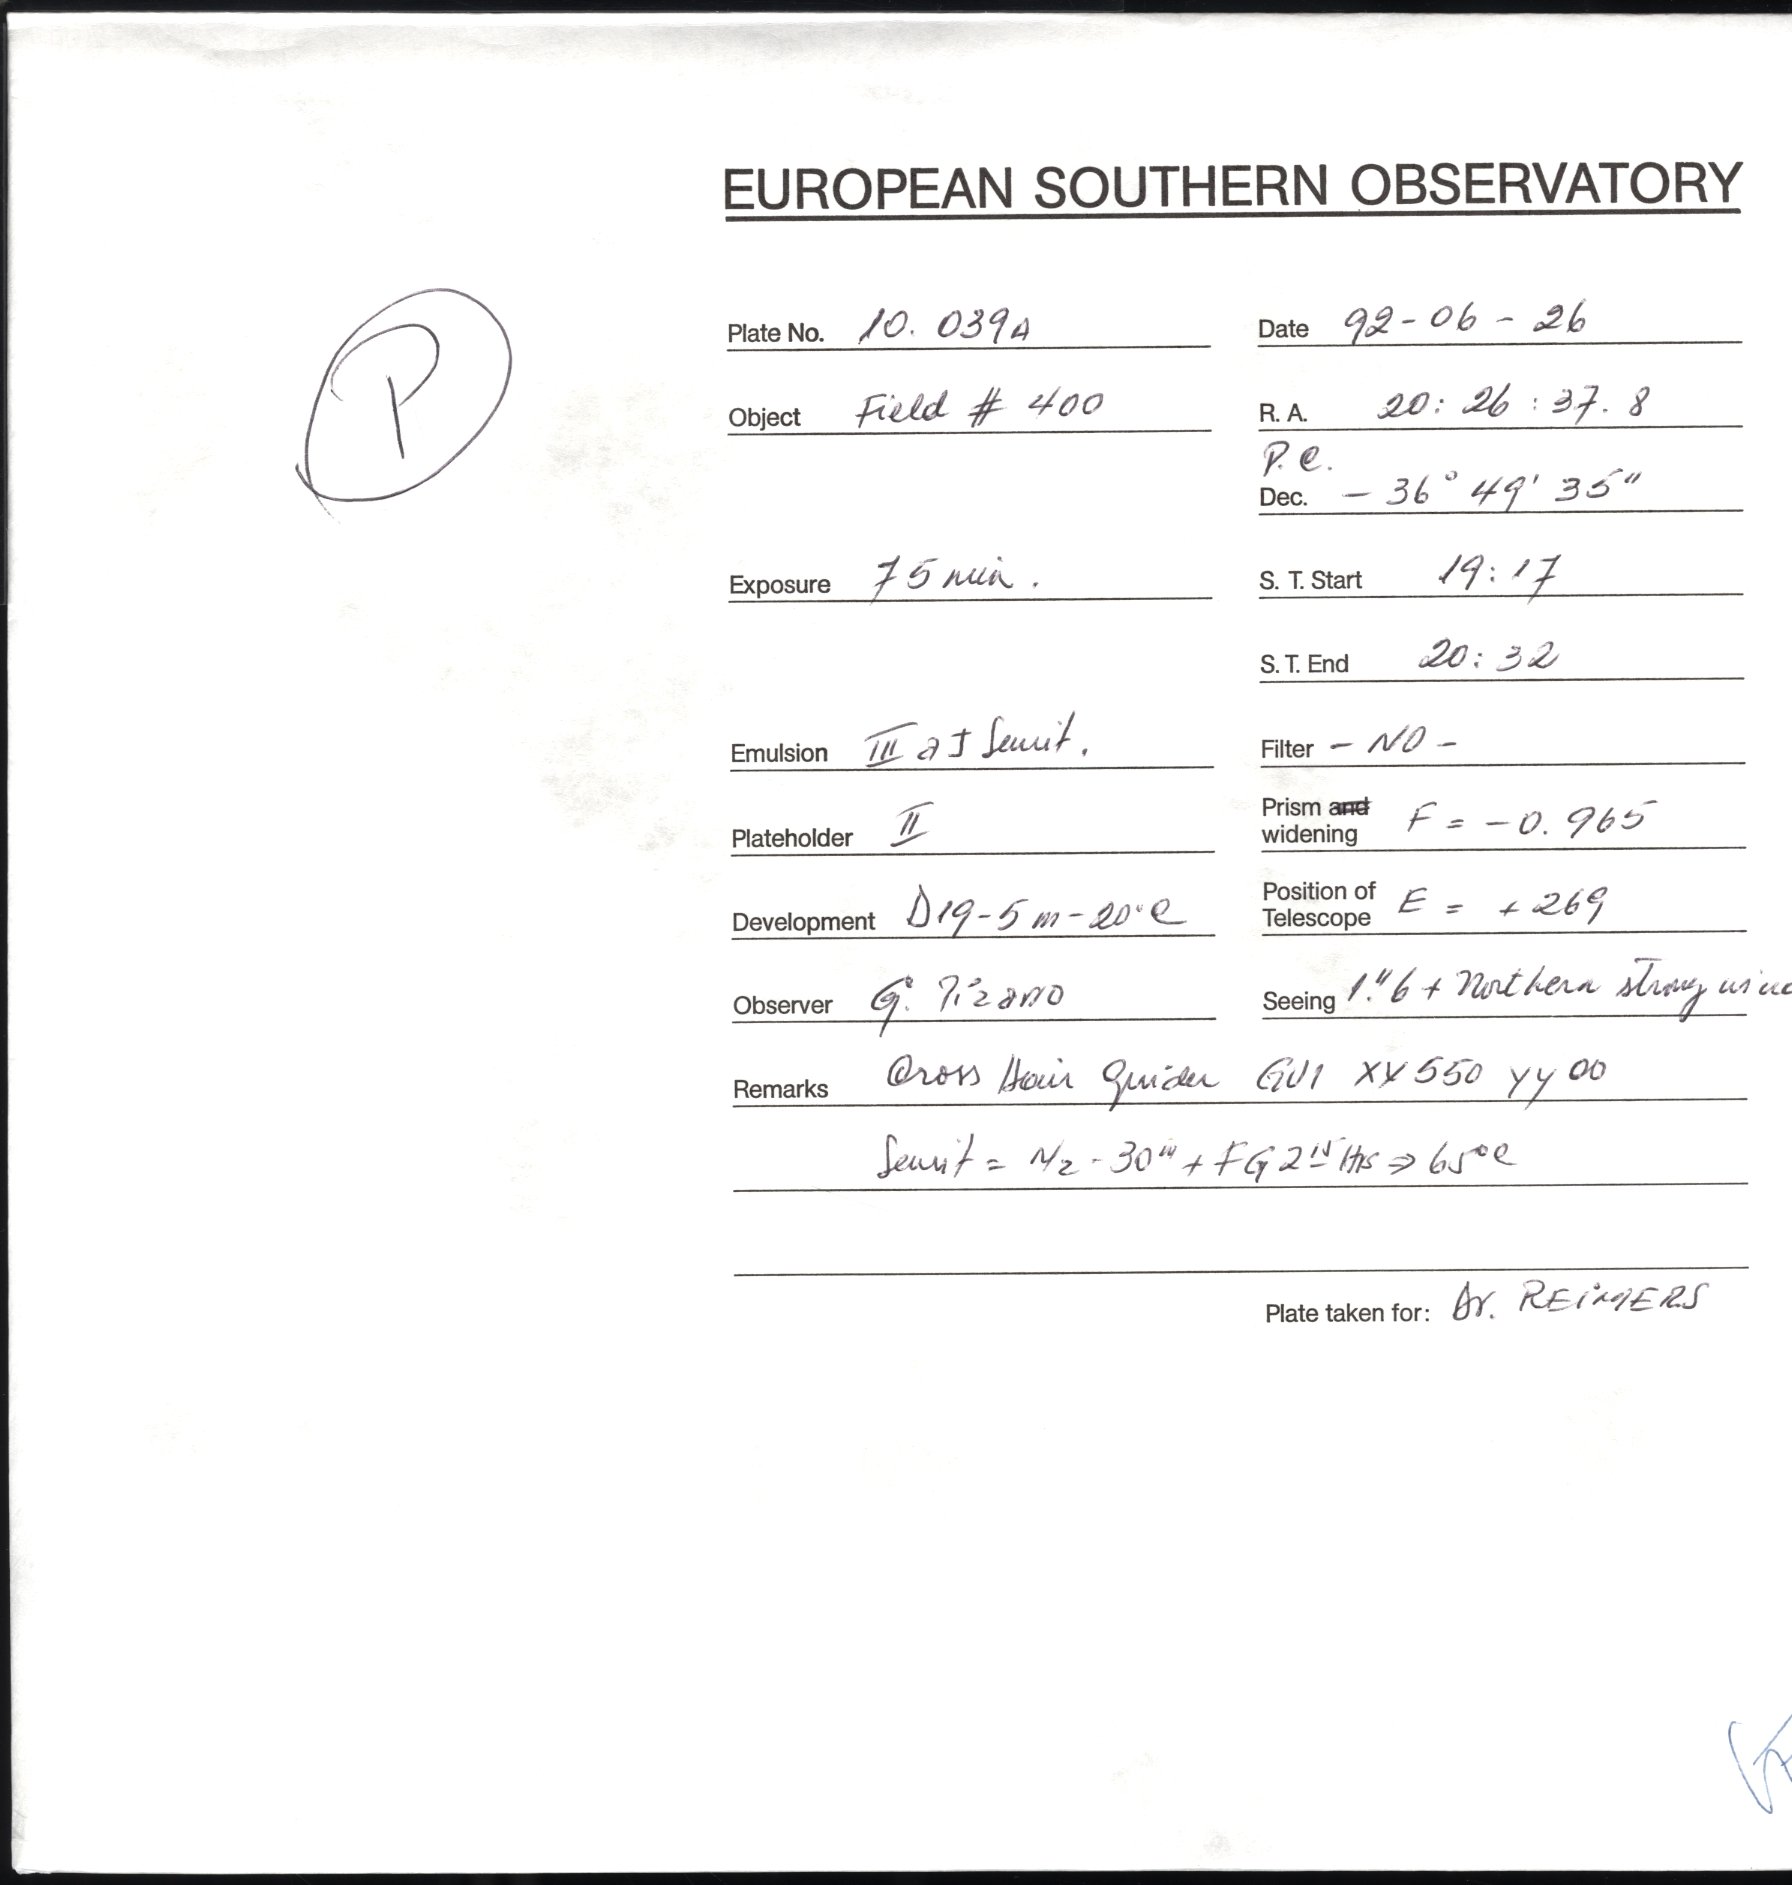 EUROPEAN SOUTHERN OBSERVATORY
P
Plate No. 10. 039A Date 92-06-26
Object Field # 400 R. A. 20: 26 : 37. 8
P. C.
Dec. - 36° 49' 35"
Exposure 75 min. S. T. Start 19:17
S. T. End 20:32
Emulsion III a J Sensit. Filter - NO -
Plateholder II Prism and widening F = -0. 965
Development D19-5 m-20°C Position of Telescope E = +269
Observer G. Pizarro Seeing 1."6 + Northern strong
Remarks Cross Hair guider GU1 XX 550 YY 00
Sensit = N2 - 30m + FG 2 Hrs ⇒ 65°C
Plate taken for: Dr. REIMERS